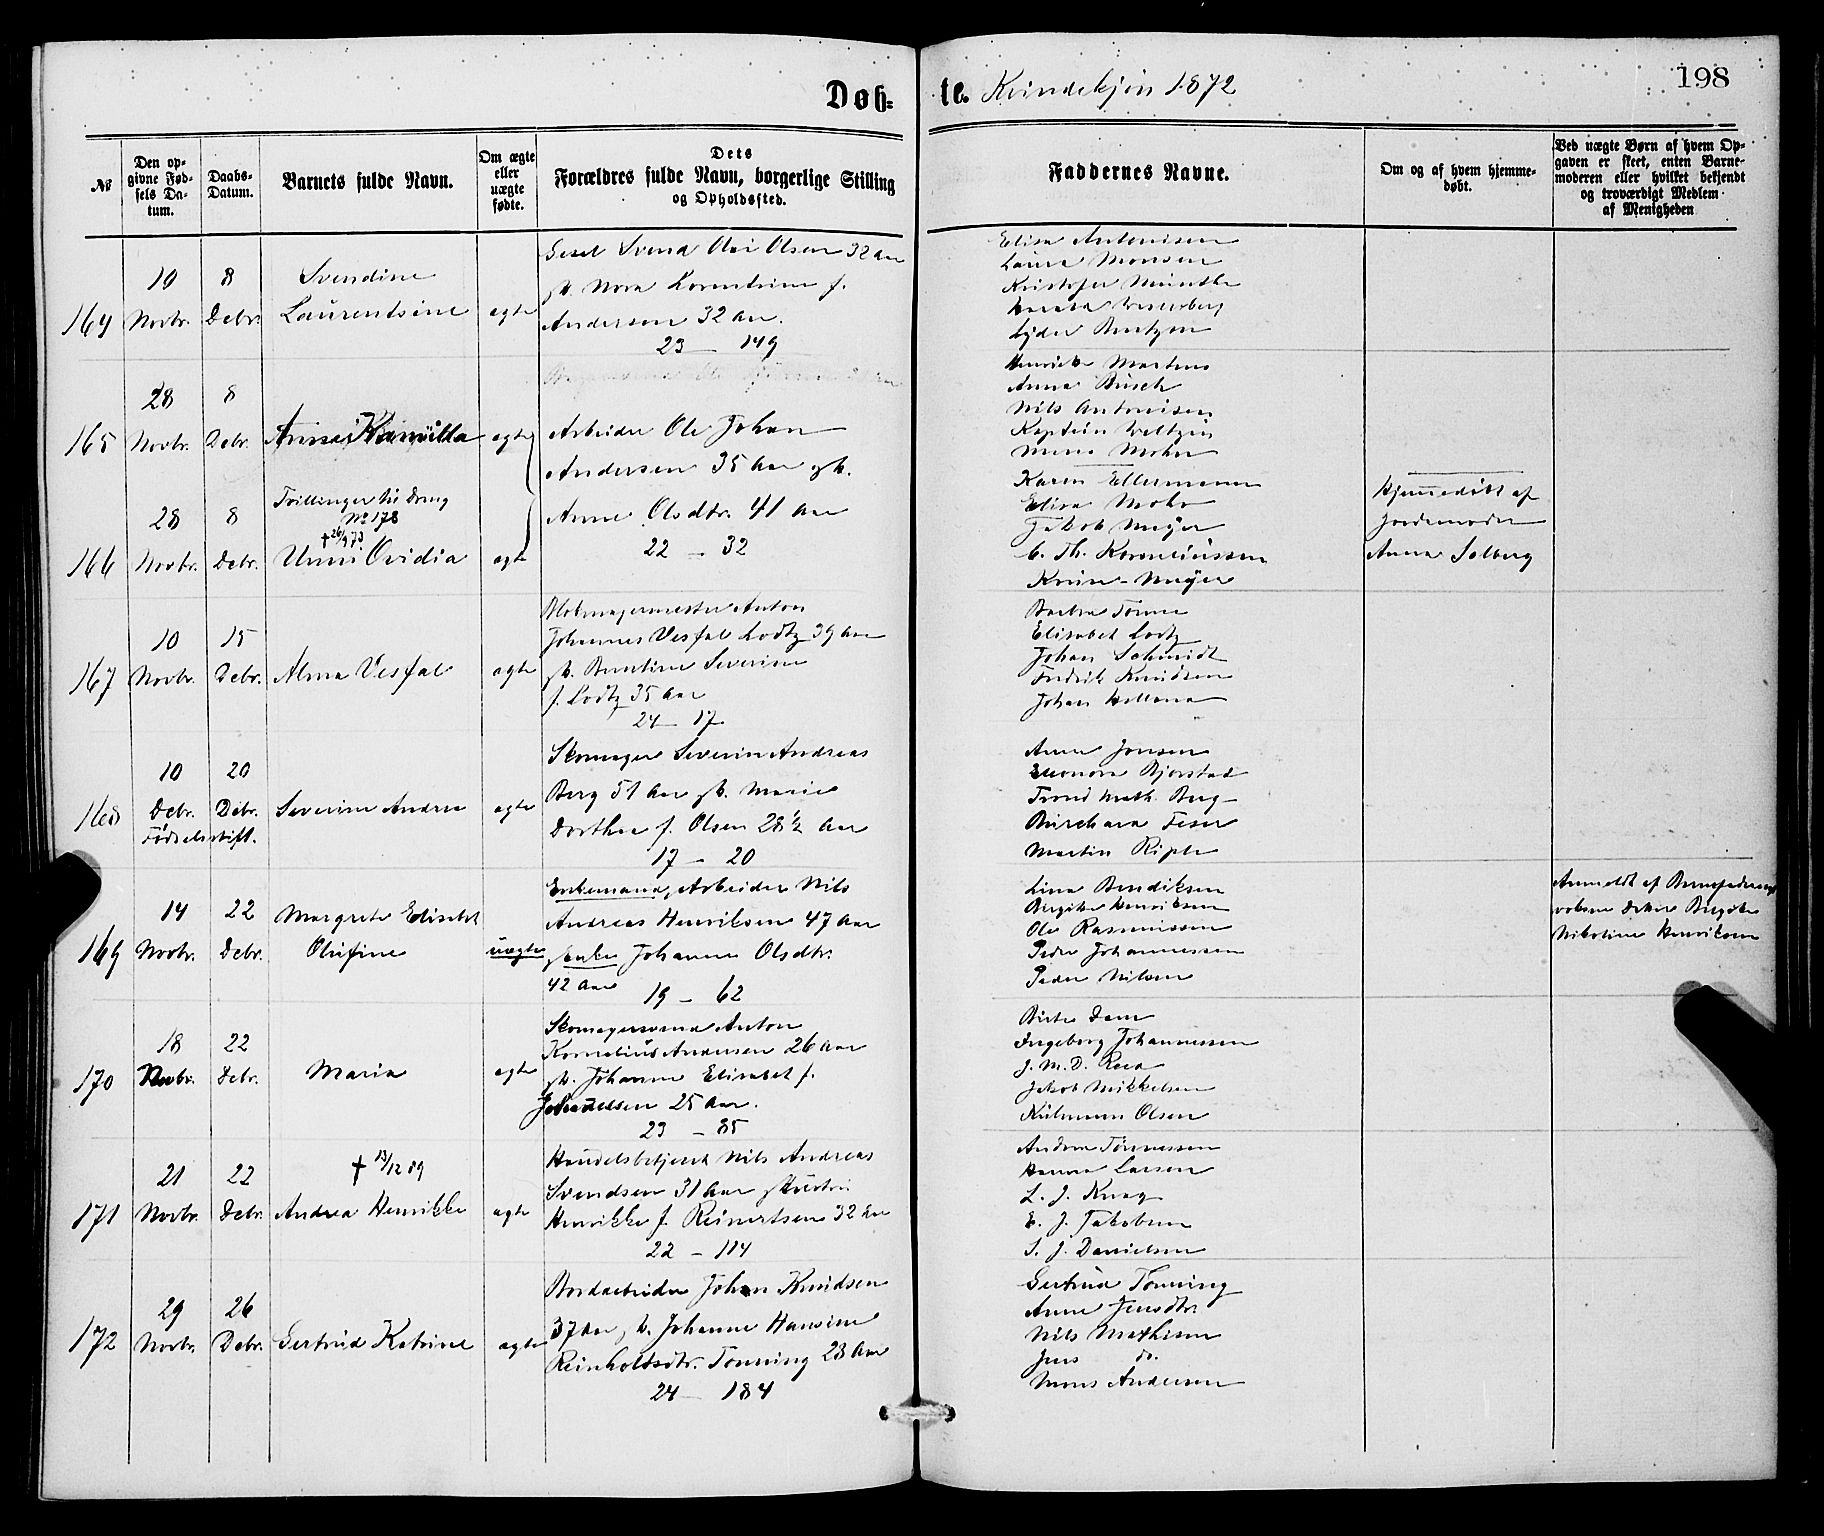 Døb-
te. Kvindekjøn 1872
198
No
Den op-
givne Fød-
sels Da-
tum.
Daabs-
Datum.
Barnets fulde Navn.
Om ægte
eller
uægte
fødte.
Dets
Forældres fulde Navn, borgerlige Stilling
og Opholdssted.
Faddernes Navne.
Om og af hvem hjemme-
døbt.
Ved uægte Børn af hvem Op-
gaven er skeet, enten Barne-
moderen eller hvilket bekjendt
og troværdigt Medlem
af Menigheden
164
10
Novbr.
8
Debr.
Svendine
Laurentsine
ægte
Svend Olai Olsen 32 Aar
h. Nora Lorentsine f.
Andersen 32 Aar.
23 – 149
Elisa Antonisen
Laura Monsen
Kristofer Meintke
Westerberg
Lyder Bentzen
165
28
Novbr.
8
Debr.
Anna Kamilla
ægte
Arbeider Ole Johan
Andersen 35 Aar h.
Anne Olsdtr. 41 Aar
22 – 32
Henrikke Martens
Anna Busch
Nils Antonisen
Kaptein Weltzin
Mohr
166
28
Novbr.
8
Debr.
Tvillinger til Dreng
No 178
† 26/9 73
Unni Ovidia
ægte
Karen Ellermann
Elisa Mohr
Jakob Meyer
C. Th. Korneliussen
Meyer
Hjemmedøbt af
Jordemoder
Anna Solberg
167
10
Novbr.
15
Debr.
Alma Vesfal
ægte
Blokmagermester Anton
Johannes Vesfal Lodtz 39 Aar
h. Berntine Severine
f. Lodtz 35 Aar
24 – 17.
Barbra Tonne
Elisabet Lodtz
Johan Schmidt
Fredrik Knudsen
Johan
168
10
Debr.
Fødselsstift.
20
Debr.
Severine Andrea
ægte
Skomager Severin Andreas
Berg 51 Aar h. Marie
Dorthea f. Olsen 28½ Aar
17 – 20
Anna Jonsen
Eleonora Bjorstad
Trond Math. Berg
Burchard
Martin Riple
169
14
Novbr.
22
Debr.
Margrete Elisabet
Olufine
uægte
Enkemand, Arbeider Nils
Andreas Henriksen 47 Aar
Enke Johanne Olsdtr.
42 Aar
19 – 62
Lina Bendiksen
Birgitte Henriksen
Ole Rasmussen
Peder Johannessen
Peder Nilsen
Anmeldt af Barnefaderens
voksne Datter Birgitte
Nikoline Henriksen
170
18
Novbr.
22
Debr.
Maria
ægte
Skomagersvend Anton
Kornelius Andersen 26 Aar
h. Johanne Elisabet f.
25 Aar.
23 – 85
Birte Dam
Ingeborg Johannessen
J. M. D.
Jakob Mikkelsen
Olsen
171
21
Novbr.
22
Debr.
† 13/12 89
Andrea Henrikke
ægte
Handelsbetjent Nils Andreas
Svendsen 31 Aar Hustru
Henrikke f. Reinertsen 32 Aar
22 – 114
Andrea Tønnessen
Hanna Larsen
L. J. Knag
E. J. Jakobsen
S. J. Danielsen
172
29
Novbr.
26
Debr.
Gertrud Katrine
ægte
Bordarbeider Johan Knudsen
37 Aar, h. Johanne Hansine
Reinholtsdtr. Tonning 28 Aar
24 – 184
Gertrud Tonning
Anne Jensdtr.
Nils Mathisen
Jens do.
Mons Andersen